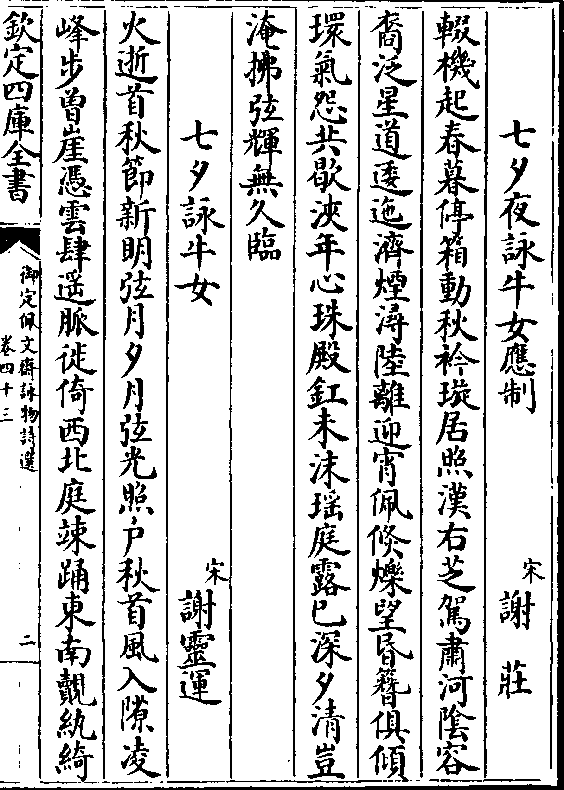 七夕夜詠牛女應制　宋謝莊
輟機起春暮停箱動秋衿璇居照漢右芝駕肅河陰容
裔泛星道逶迤濟煙潯陸離迎宵佩倐爍望昏簪俱傾
環氣怨共歇浹年心珠殿釭未沬瑶庭露已深夕清豈
淹拂弦輝無久臨
七夕詠牛女　宋謝靈運
火逝首秋節新明弦月夕月弦光照户秋首風入隙凌
峰步曽崖憑雲肆遥脈徙倚西北庭竦踊東南覿紈綺
欽定四庫全書
御定佩文齋詠物詩選
卷四十三
二